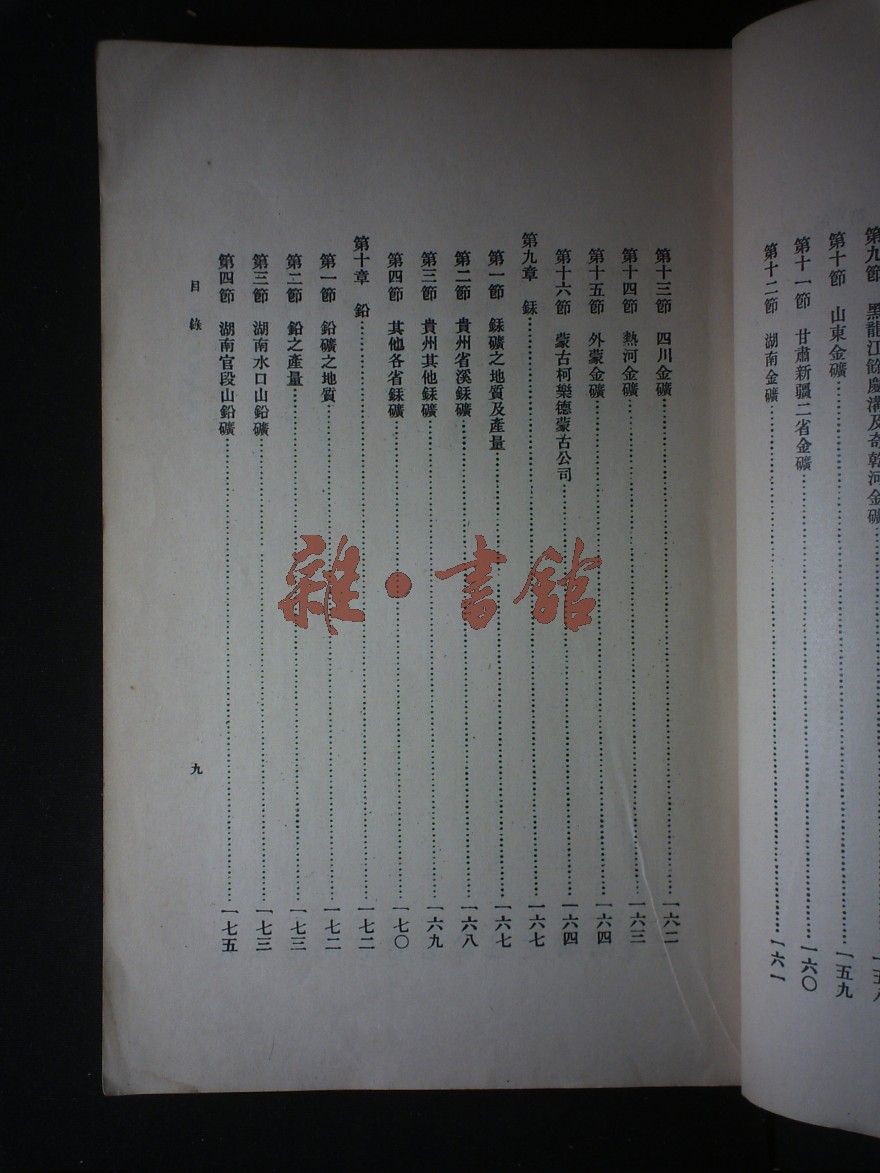 第九節　黑龍江餘慶溝及奇乾河金礦……一五八
第十節　山東金礦……一五九
第十一節　甘肅新疆二省金礦……一六〇
第十二節　湖南金礦……一六一
第十三節　四川金礦……一六二
第十四節　熱河金礦……一六三
第十五節　外蒙金礦……一六四
第十六節　蒙古柯樂德蒙古公司……一六四
第九章　銾……一六七
第一節　銾礦之地質及產量……一六七
第二節　貴州省溪銾礦……一六八
第三節　貴州其他銾礦……一六九
第四節　其他各省銾礦……一七〇
第十章　鉛……一七二
第一節　鉛礦之地質……一七二
第二節　鉛之產量……一七三
第三節　湖南水口山鉛礦……一七三
第四節　湖南官段山鉛礦……一七五
目錄
九
雜·書館